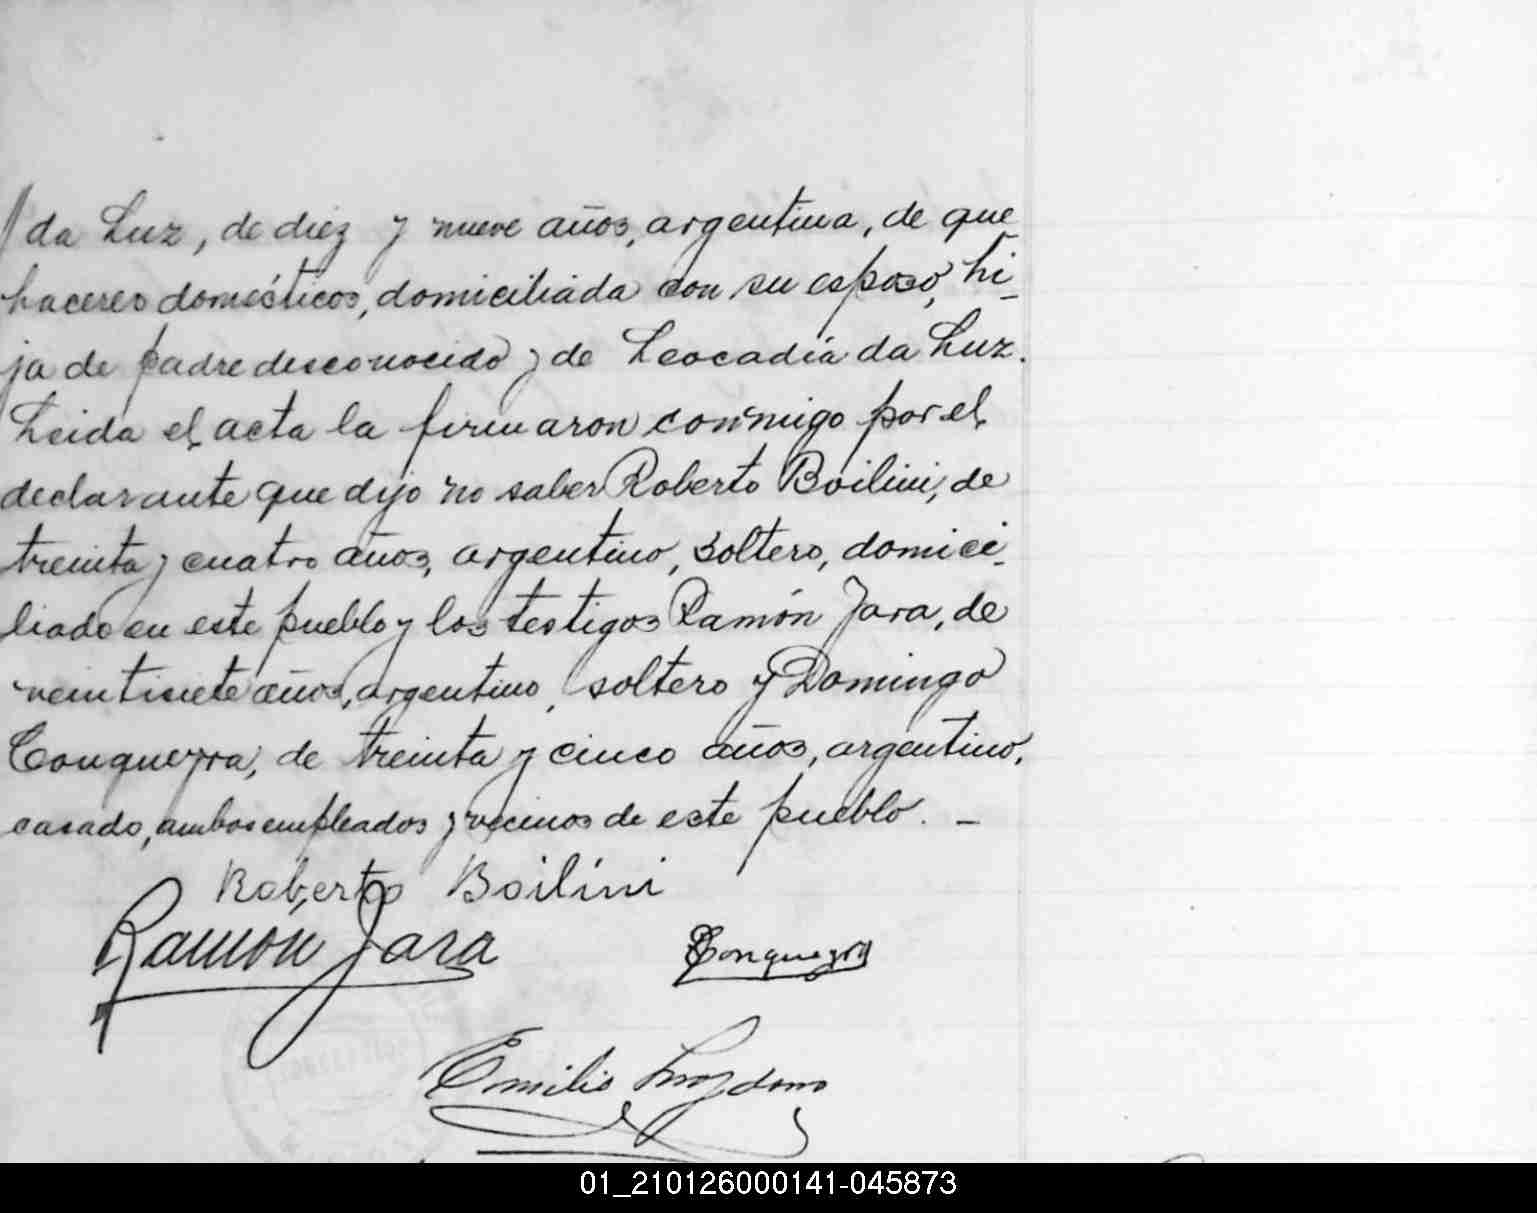 da Luz, de diez y nueve años, argentina, de que
haceres domésticos, domiciliada con su esposo, hi-
ja de padre desconocido y de Leocadia da Luz.
Leida el acta la firmaron conmigo por el
declarante que dijo no saber Roberto Boilini, de
treinta y cuatro años, argentino, soltero, domici-
liado en este pueblo y los testigos Ramón Jara, de
veintisiete años, argentino, soltero y Domingo
Conqueyra, de treinta y cinco años, argentino,
casado, ambos empleados y vecinos de este pueblo. -
Roberto Boilini
Ramón Jara
Emilio
01_210126000141-045873